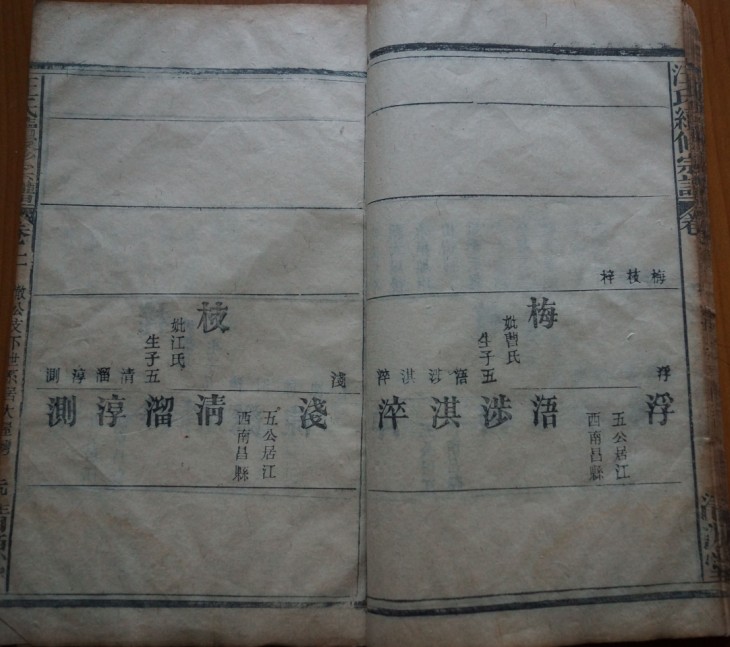 汪氏續修宗譜
卷
梅枝梓
梅
妣曹氏
生子五
浮
浯
涉
淇
淬
浮
五公居江
西南昌縣
浯
涉
淇
淬
枝
妣江氏
生子五
淺
清
溜
淳
測
淺
五公居江
西南昌縣
清
溜
淳
測